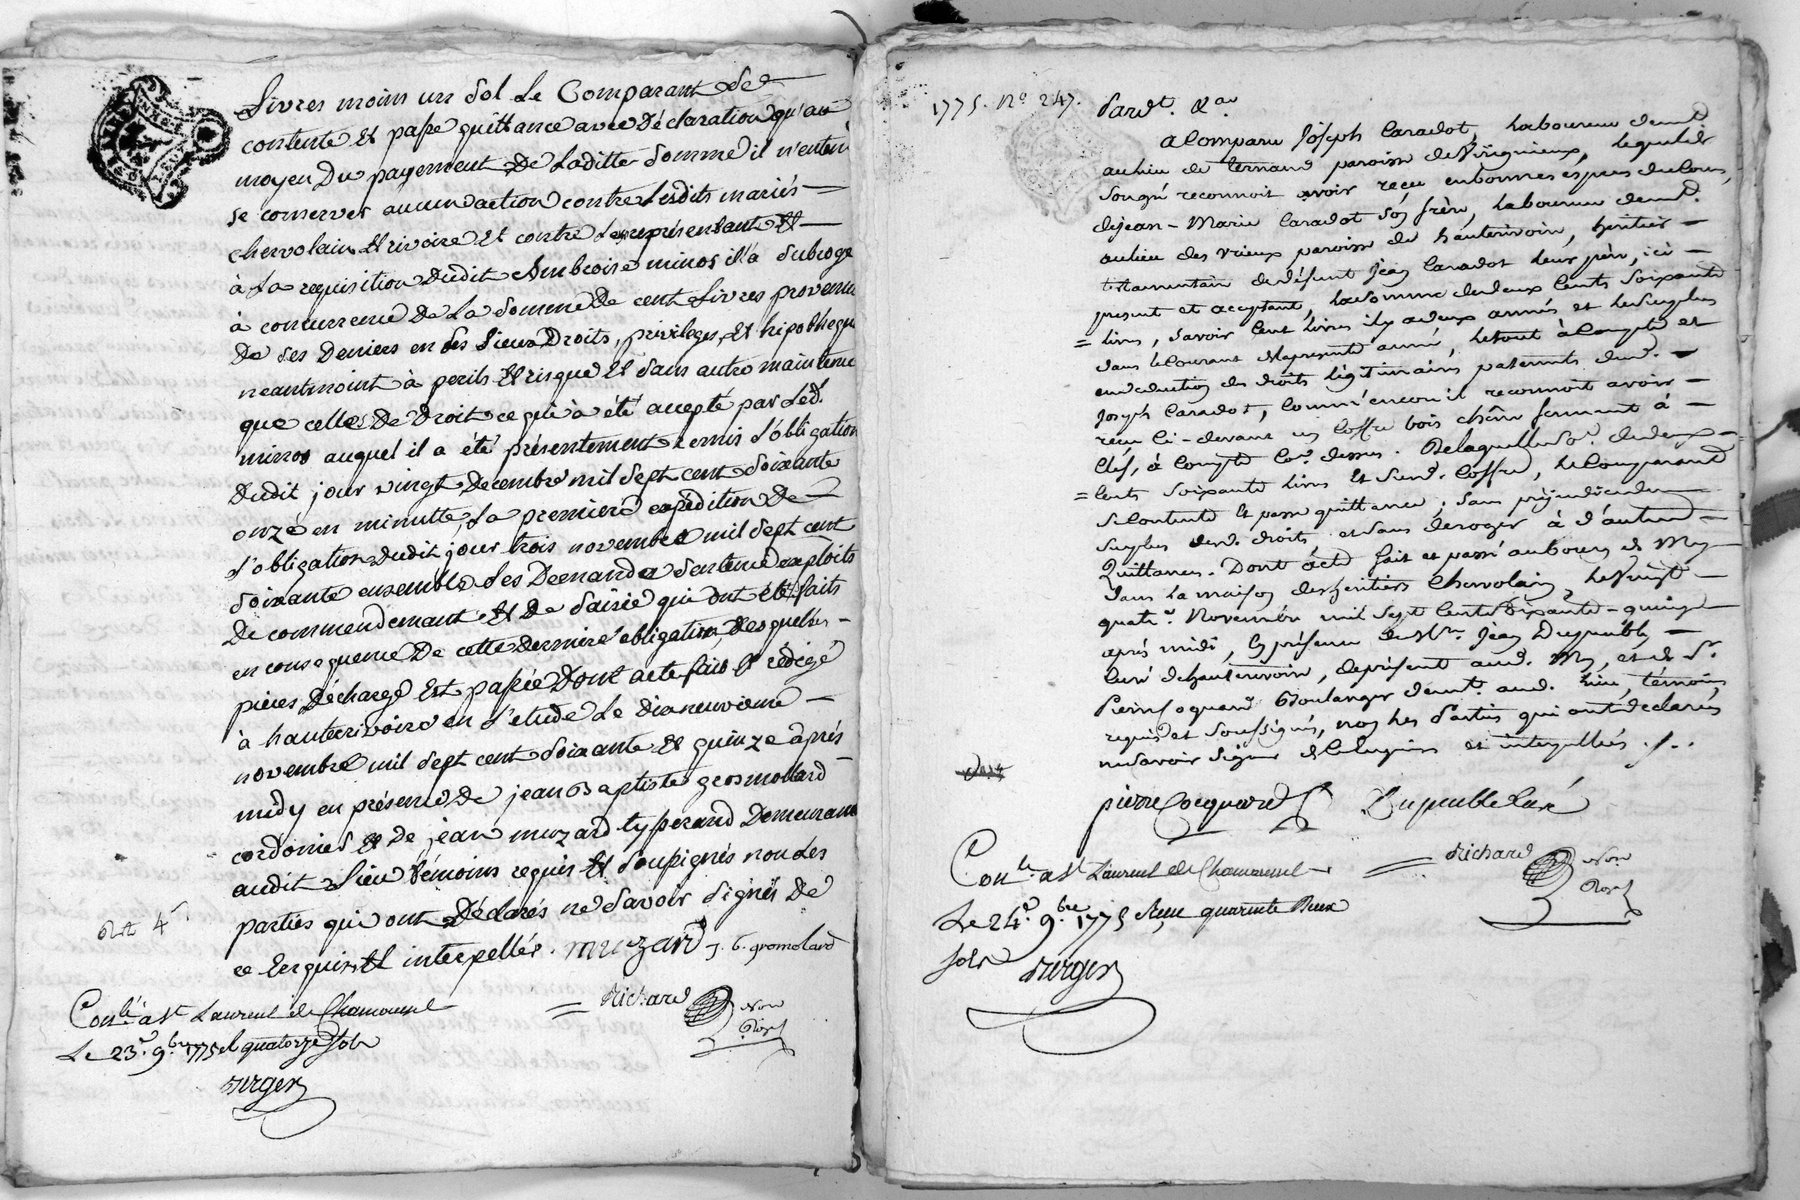 Livres moins un sol Le Comparant se
contente Et passe quittance avec déclaration qu'au
moyen Du payement De Laditte Somme il n'entend
se conserver aucune action contre Lesdits mariés
chervolain Et rivoire Et contre Le représentant Et
à La requisition Dudit Ambroise miros il l'a subrogé
à concurrence De La Somme De cent Livres provenue
De Ses Deniers en Ses Lieux Droits, privileges, Et hipotheque
neantmoins à perils Et risque Et sans autre maintenue
que celles De Droit ce qui à été accepté par Led.
miros auquel il a été présentement remis L'obligation
Dudit jour vingt Decembre mil Sept cent Soixante
onze en minutte, La premiere expédition De
L'obligation Dudit jour trois novembre mil Sept cent
Soixante ensemble Les Demande Sentence exploits
De commendement Et De Saisie qui ont été faits
en consequence De cette Derniere obligation, Desquelles
pieces Décharge Est passée Dont acte fait & rédigé
à hauterivoire en L'etude Le Dixneuvieme
novembre mil Sept cent Soixante Et quinze après
midy en présence De jean Baptiste grosmollard
cordonier Et De jean muzard typerand Demeurant
audit Lieu témoins requis Et Soussignés non Les
parties qui ont Déclarés ne Savoir signer De
ce Enquis Et interpellés. muzard J. b. gromolard
Conlé a St Laurent de Chamousset
Richard
Le 23e. 9bre 1775 quatorze Sols
Surger
1775. No 247.
Pardt. &a
a Comparu Joseph Caradot, Laboureur demt
au lieu de Ternand paroisse de Virignieux, Lequel de
Songré reconnoit avoir reçu en bonnes especes du Cours,
de jean-Marie Caradot Son frère, Laboureur demt.
au lieu des vieux paroisse de hauterivoire, heritier
testamentaire de défunt Jean Caradot Leur père, ici
present et acceptant, La Somme de deux Cents Soixante
= Livres, Savoir Cent Livres il y a deux années et Le Surplus
dans Le Courant de la presente année, Le tout à Compte et
en deduction des droits légitimaires paternels dud.
Joseph Caradot, Comm'encore il reconnoit avoir
reçu Ci-devant un Coffre bois chêne fermant à
Clef, à Compte Come dessus. De laquelle Some de deux
= Cents Soixante Livres Et dud. Coffre, Le Comparant
Se Contente Et passe quittance, Sans préjudice du
Surplus desd. droits et Sans deroger à d'autres
Quittances. Dont acte fait et passé au bourg de Mey
dans La maison des heritiers Chervolain, Le Vingt
quatre. Novembre mil Sept Cent Soixante-quinze
après midi, En présence de Mre. Jean Dupeuble
Curé de hauterivoire, de présent aud. Mey, et de Sr.
Pierre Coquard Boulanger demt. aud. Lieu, témoins
requis et Soussignés, non Les Parties qui ont déclarés
ne Savoir Signer de Ce Enquis et interpellées ./.
pierre Cocquard Dupeuble Curé
Conle. a St Laurent de Chamousset
Richard
Le 24e. 9bre 1775 Reçu quarente Deux
Sols Surger